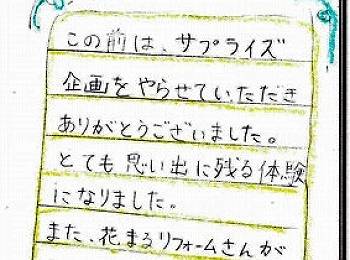 この前は、サプライズ
企画をやらせていただき
ありがとうございました。
とても思い出に残る体験
になりました。
また、花まるリフォームさんが